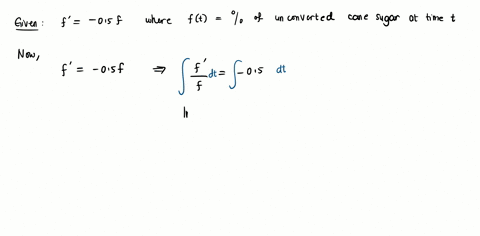 Given: f' = -0.5f where f(t) = % of unconverted cane sugar at time t
Now,
f' = -0.5f ⇒ ∫ f'/f dt = ∫ -0.5 dt
ln